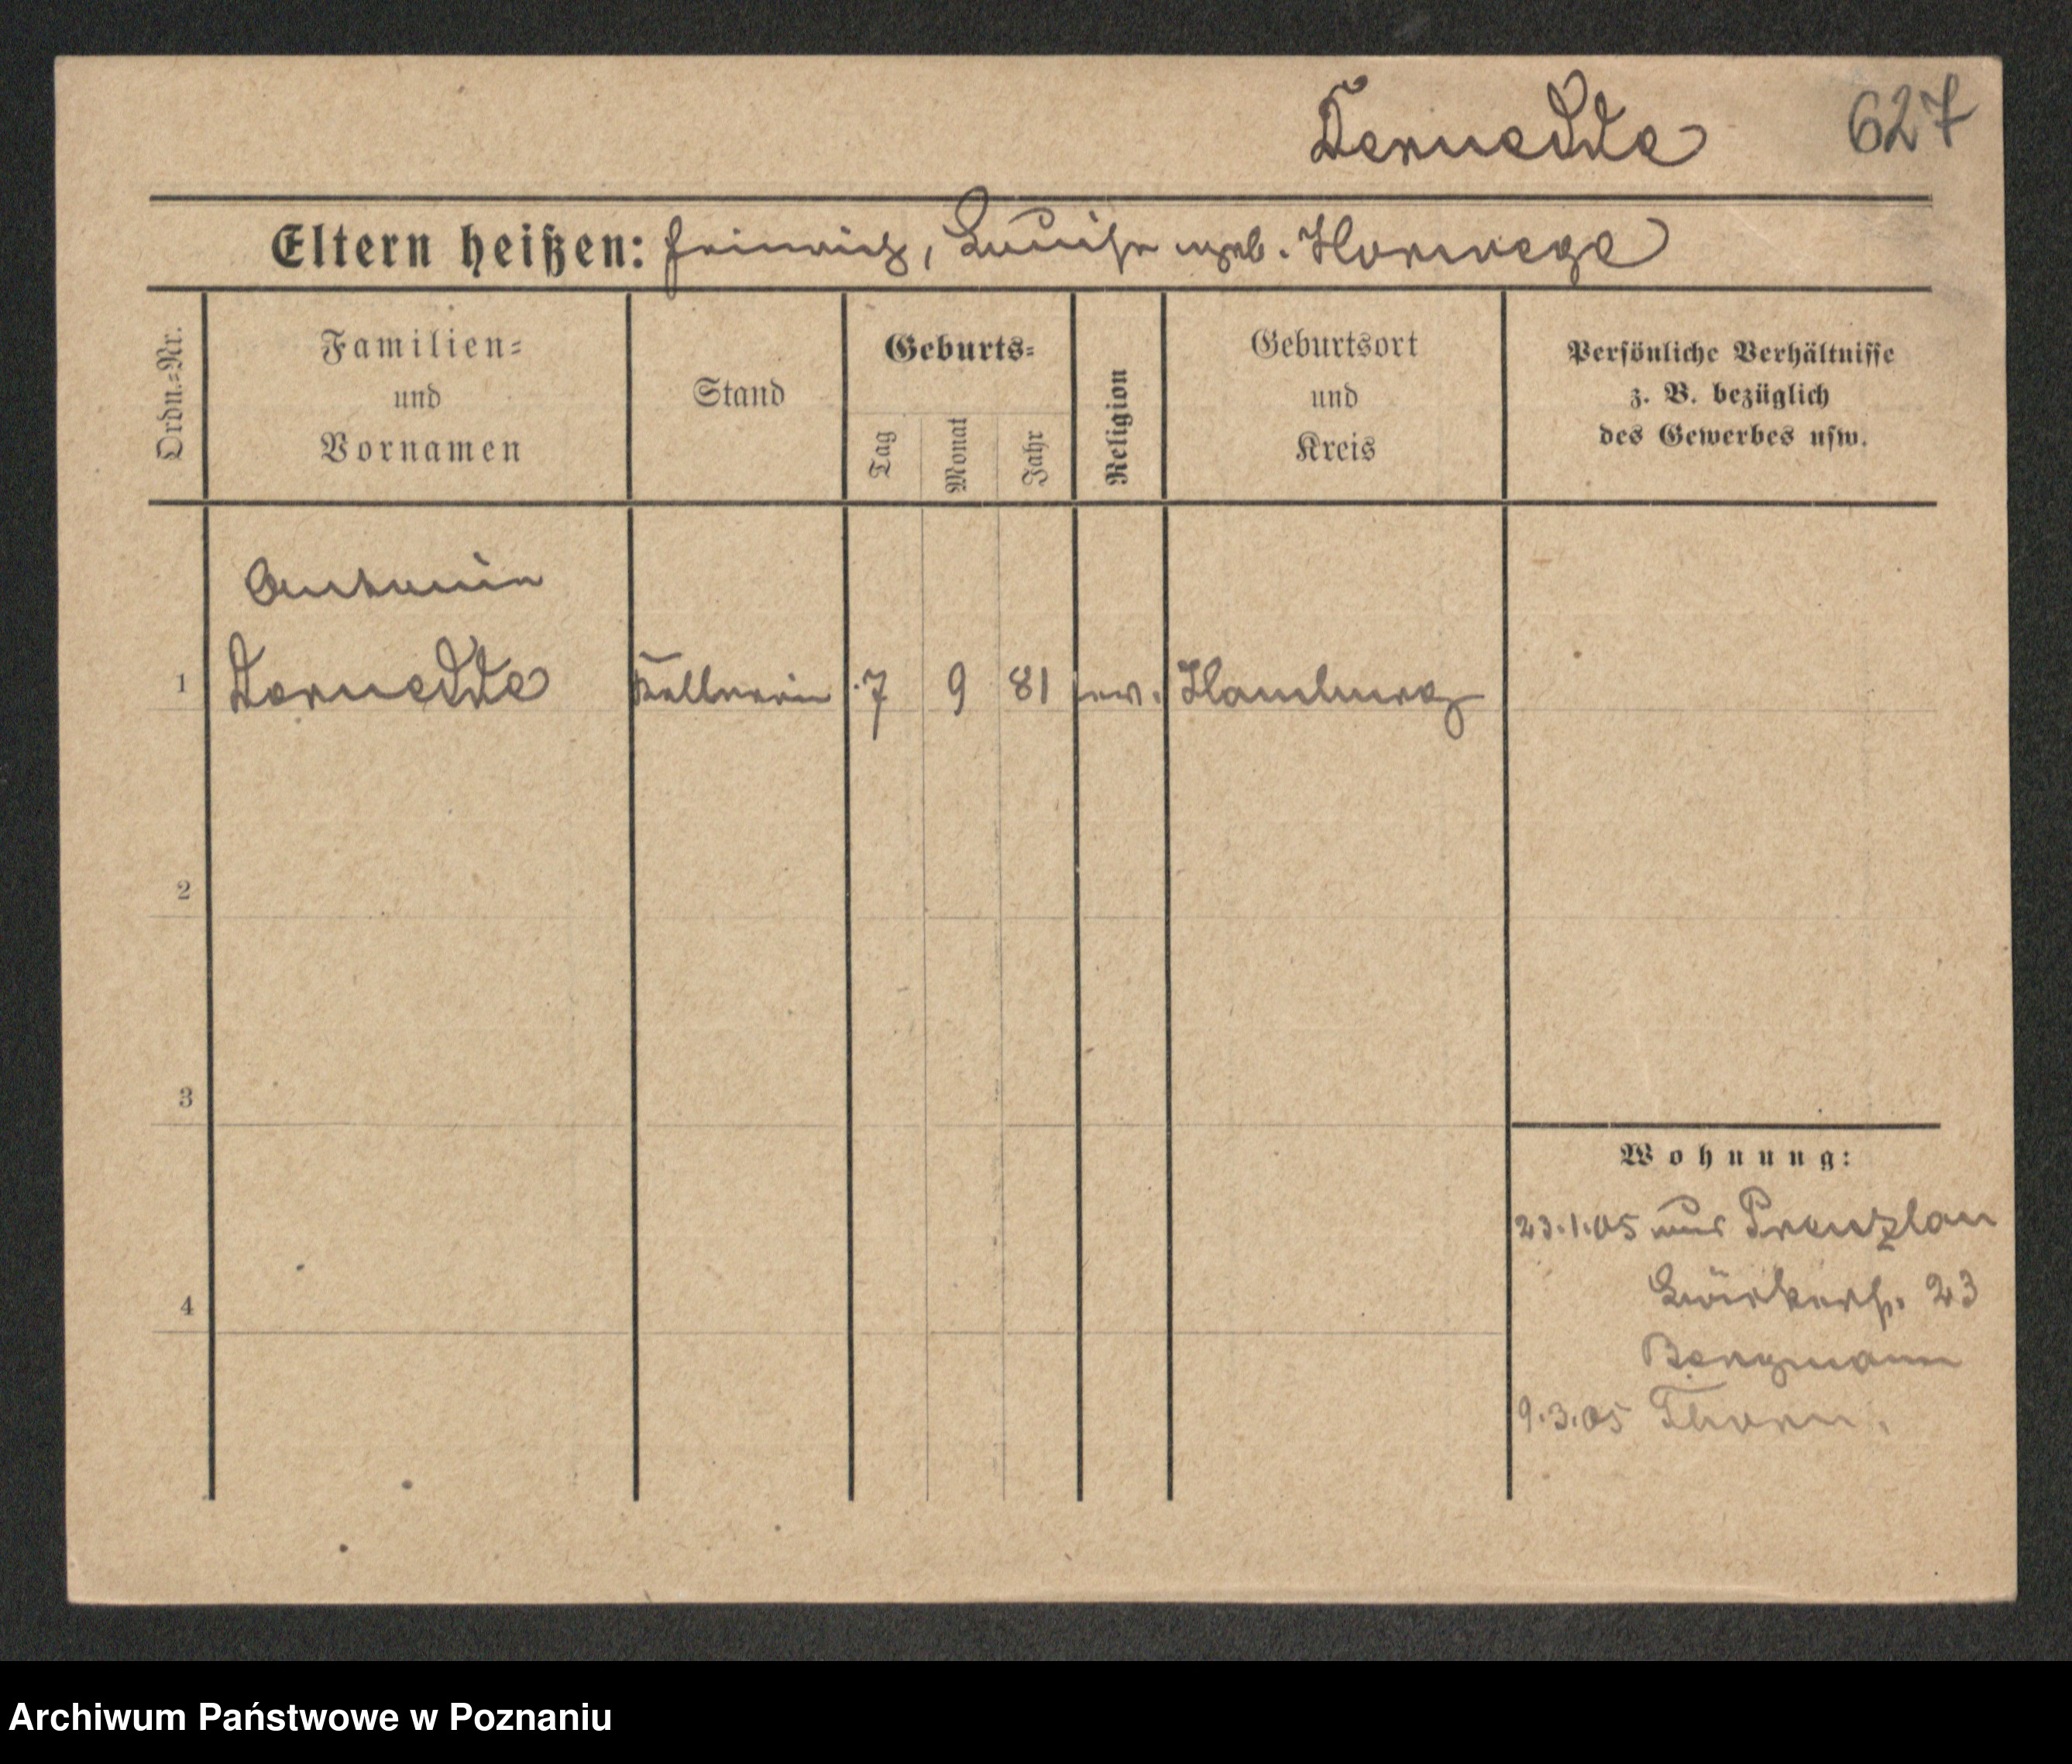 Dernedde 627
Eltern heißen: Heinrich, Louise geb. Horwege
Ordn.=Nr.
Familien=
und
Vornamen
Stand
Geburts=
Tag
Monat
Jahr
Religion
Geburtsort
und
Kreis
Persönliche Verhältnisse
z. B. bezüglich
des Gewerbes usw.
1
Dernedde Kellnerin 7 9 81 ev. Hamburg
2
3
4
Wohnung:
23.1.05 aus Prenzlau
23
Bergmann
9.3.05 Thorn.
Archiwum Państwowe w Poznaniu